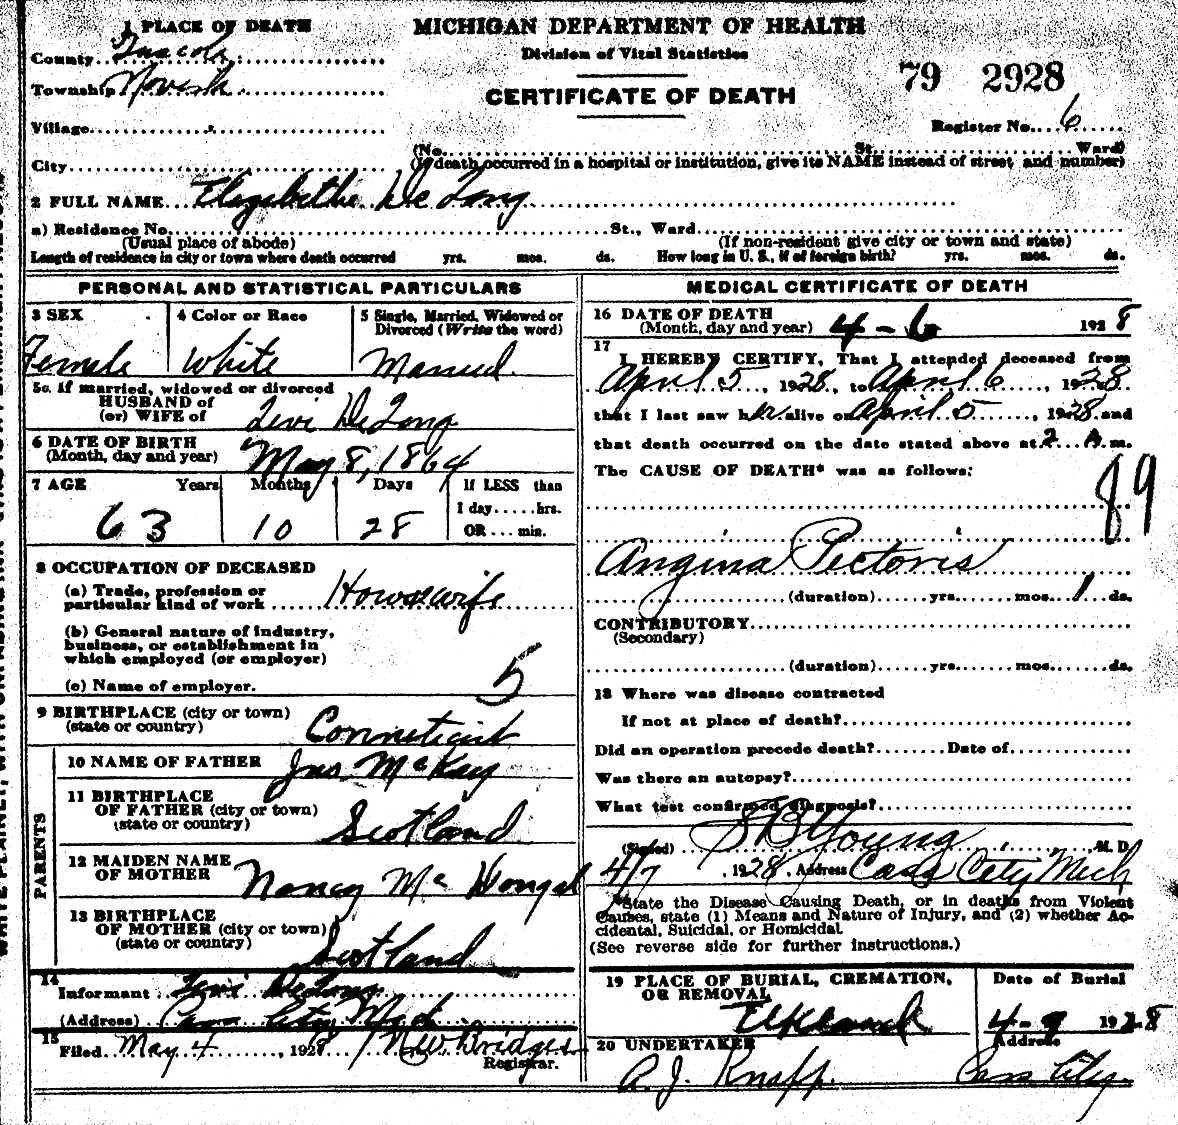 1 PLACE OF DEATH
County Tuscola
Township Novesta
Village
City
MICHIGAN DEPARTMENT OF HEALTH
Division of Vital Statistics
CERTIFICATE OF DEATH
79 2928
Register No. 6
(No. St. Ward)
(If death occurred in a hospital or institution, give its NAME instead of street and number)
2 FULL NAME Elizabethe De Long
a) Residence No. St., Ward
(Usual place of abode) (If non-resident give city or town and state)
Length of residence in city or town where death occurred yrs. mos. ds. How long in U. S., if of foreign birth? yrs. mos. ds.
PERSONAL AND STATISTICAL PARTICULARS
3 SEX
Female
4 Color or Race
White
5 Single, Married, Widowed or
Divorced (Write the word)
Married
5c. if married, widowed or divorced
HUSBAND of
(or) WIFE of Levi DeLong
6 DATE OF BIRTH
(Month, day and year) May 8, 1864
7 AGE Years Months Days
63 10 28
If LESS than
1 day.....hrs.
OR...min.
8 OCCUPATION OF DECEASED
(a) Trade, profession or
particular kind of work Housewife
(b) General nature of industry,
business, or establishment in
which employed (or employer)
(c) Name of employer. 5
9 BIRTHPLACE (city or town)
(state or country) Conneticut
PARENTS
10 NAME OF FATHER Jno. McKay
11 BIRTHPLACE
OF FATHER (city or town)
(state or country) Scotland
12 MAIDEN NAME
OF MOTHER Nancy Mc Dougal
13 BIRTHPLACE
OF MOTHER (city or town)
(state or country) Scotland
14
Informant Levi DeLong
(Address) Cass City Mich
15
Filed May 4, 1928 Bridges
Registrar.
MEDICAL CERTIFICATE OF DEATH
16 DATE OF DEATH
(Month, day and year) 4-6 1928
17
I HEREBY CERTIFY, That I attended deceased from
April 5, 1928, to April 6, 1928
that I last saw her alive on April 5, 1928 and
that death occurred on the date stated above at 2 A. m.
The CAUSE OF DEATH* was as follows:
89
Angina Pectoris
(duration) yrs. mos. 1 ds.
CONTRIBUTORY
(Secondary)
(duration) yrs. mos. ds.
18 Where was disease contracted
If not at place of death?
Did an operation precede death? Date of
Was there an autopsy?
What test confirmed diagnosis?
(Signed) Young M. D.
4/7, 1928. Address Cass City Mich
*State the Disease Causing Death, or in deaths from Violent
Causes, state (1) Means and Nature of Injury, and (2) whether Ac-
cidental, Suicidal, or Homicidal
(See reverse side for further instructions.)
19 PLACE OF BURIAL, CREMATION,
OR REMOVAL
Elkland
Date of Burial
4-9 1928
20 UNDERTAKER
A. J. Knapp.
Address
Cass City.